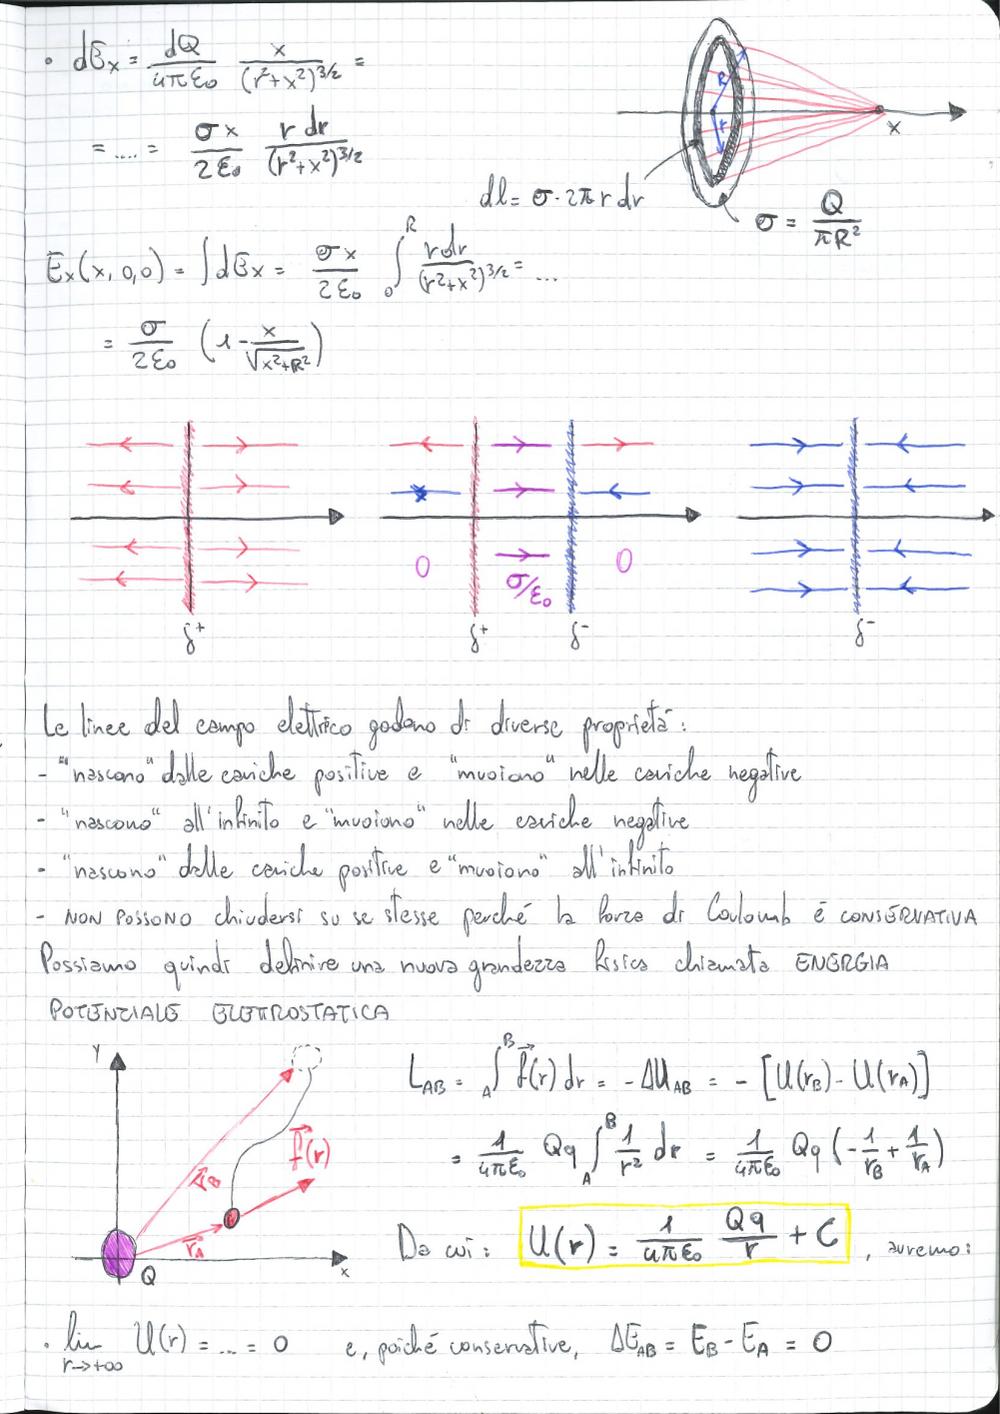 • dEx = dQ/4πε₀ x/(r²+x²)^3/2 =
= .... = σx/2ε₀ r dr/(r²+x²)^3/2
R
r
x
dl = σ·2πr dr
σ = Q/πR²
Ex(x,0,0) = ∫dEx = σx/2ε₀ ∫₀ᴿ rdr/(r²+x²)^3/2 = ...
= σ/2ε₀ (1 - x/√(x²+R²))
0 σ/ε₀ 0
δ⁺ δ⁺ δ⁻ δ⁻
Le linee del campo elettrico godono di diverse proprietá:
- "nascono" dalle cariche positive e "muoiono" nelle cariche negative
- "nascono" all'infinito e "muoiono" nelle cariche negative
- "nascono" dalle cariche positive e "muoiono" all'infinito
- NON POSSONO chiudersi su se stesse perché la forza di Coulomb é CONSERVATIVA
Possiamo quindi definire una nuova grandezza fisica chiamata ENERGIA
POTENZIALE ELETTROSTATICA
Y
r⃗B
f⃗(r)
r⃗A
Q
x
L_AB = ∫_A^B f⃗(r) dr = -ΔU_AB = -[U(r_B) - U(r_A)]
= 1/4πε₀ Qq ∫_A^B 1/r² dr = 1/4πε₀ Qq (-1/r_B + 1/r_A)
Da cui: U(r) = 1/4πε₀ Qq/r + C , avremo:
• lim r→+∞ U(r) = ... = 0 e, poiché conservative, ΔE_AB = E_B - E_A = 0